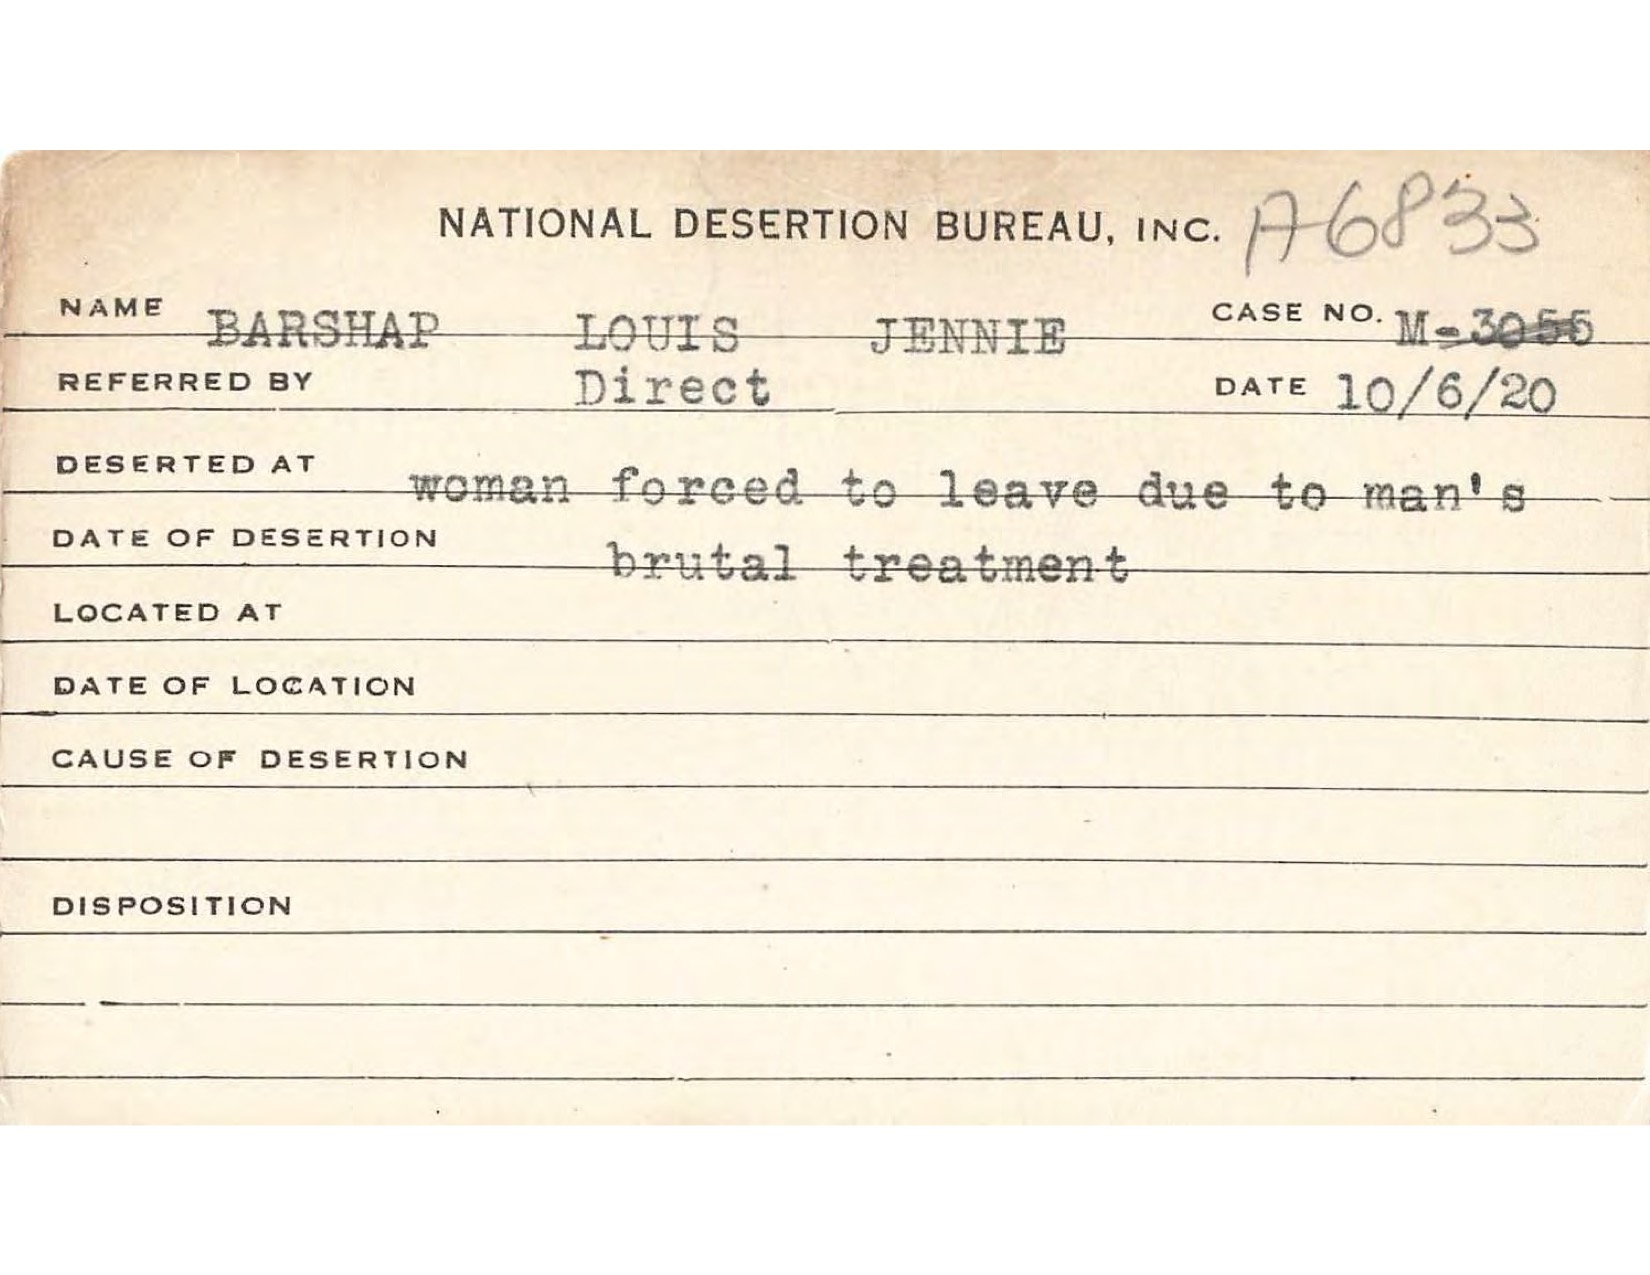 NATIONAL DESERTION BUREAU, INC. A6833
NAME BARSHAP LOUIS JENNIE CASE NO. M-3055
REFERRED BY Direct DATE 10/6/20
DESERTED AT woman forced to leave due to man's
DATE OF DESERTION brutal treatment
LOCATED AT
DATE OF LOCATION
CAUSE OF DESERTION
DISPOSITION